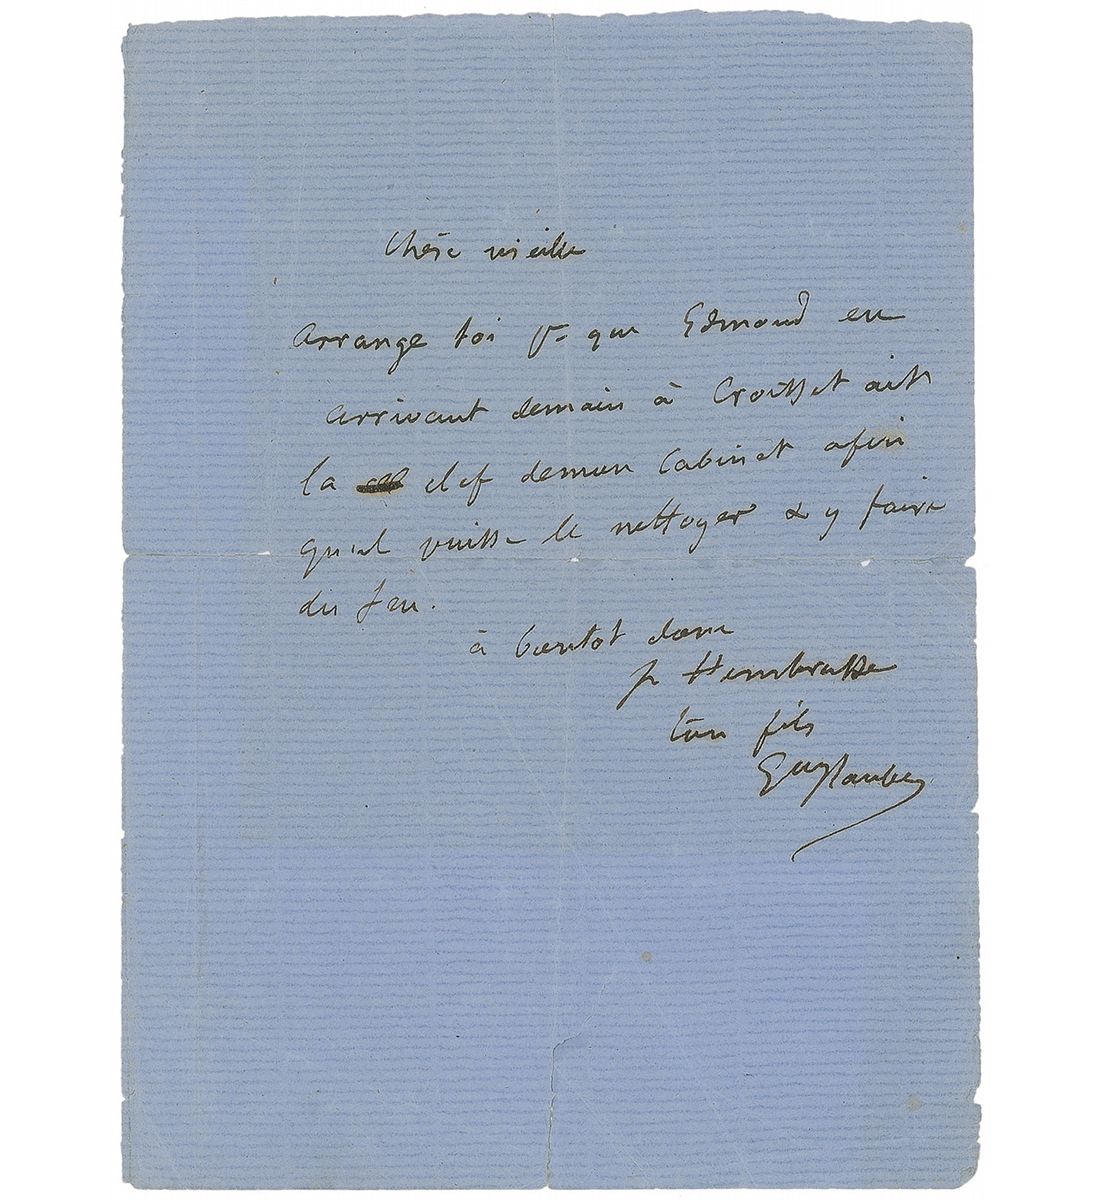 Chère vieille
Arrange toi pr que Edmond en
arrivant demain à Croisset ait
la clef de mon Cabinet afin
qu'il puisse le nettoyer & y faire
du feu.
à bientot donc
je t'embrasse
ton fils
Gve Flaubert